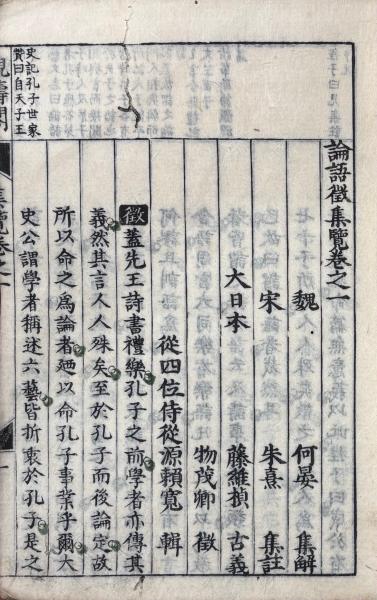 論語徵集覽卷之一
魏 何晏 集解
宋 朱熹 集註
大日本 藤維楨 古義
物茂卿 徵
從四位侍從源賴寬 輯
徵蓋先王詩書禮樂孔子之前學者亦傳其
義然其言人人殊矣至於孔子而後論定故
所以命之爲論者廼以命孔子事業乎爾大
史公謂學者稱述六藝皆折衷於孔子是之
史記孔子世家
贊曰自天子王
觀濤閣
集覽卷之一